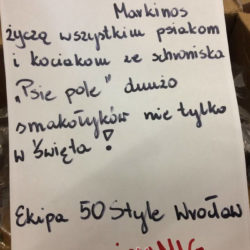 Markinos
życzą wszystkim psiakom
i kociakom ze schroniska
„Psie pole” dużo
smakołyków nie tylko
w Święta!
Ekipa 50 Style Wrocław